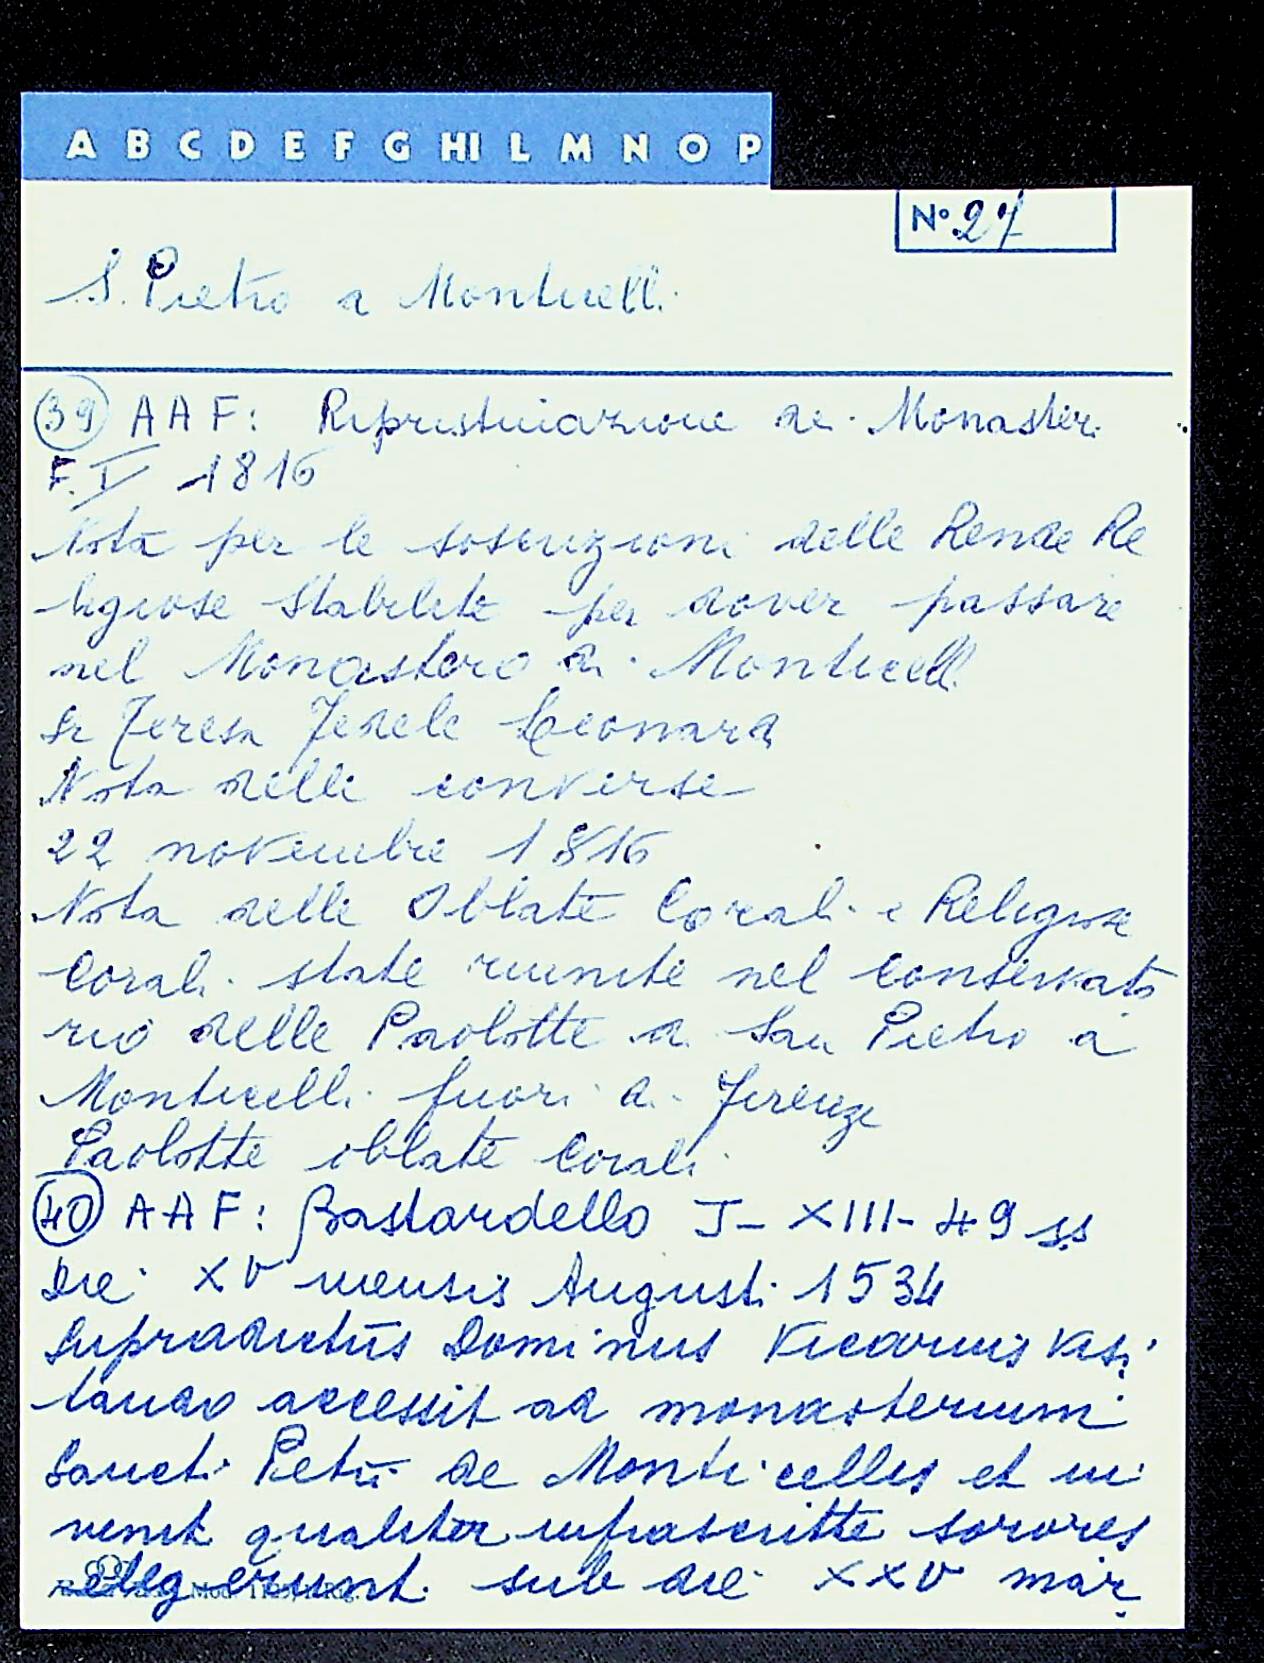 A B C D E F G HI L M N O P
N° 27
S. Pietro a Monticelli
39 AAF: Ripristinazione dei Monasteri
F. I 1816
Nota per le soscrizioni delle Rende Re
ligiose Stabilite per dover passare
nel Monastero di Monticelli
Sr Teresa Fedele Leonard
Nota delle converse
22 novembre 1816
Nota delle Oblate Corali e Religiose
Corali state riunite nel conservato
rio delle Paolotte di San Pietro a
Monticelli fuori di Firenze
Paolotte oblate Corali
40 AAF: Bastardello J- XIII- 49 ss
Die XV mensis Augusti 1534
Supradictus Dominus Vicarius visi
tando accessit ad monasterium
Sancti Petri de Monticellis et in
venit qualiter infrascritte sorores
elegerunt sub die XXV mar